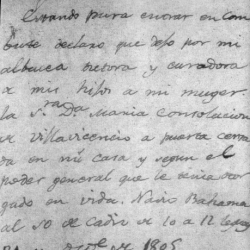 Estando para entrar en Com
bate declaro que dejo por mi
albacea tutora y curadora
a mis hijos a mi muger
la S.ra D.a Maria Consolacion
de Villavicencio a puerta cerra
da en mi casa y segun el
poder general que le tenia otor
gado en vida. Navio Bahama
al SO de Cadiz de 10 a 12 leguas
21 de 1805